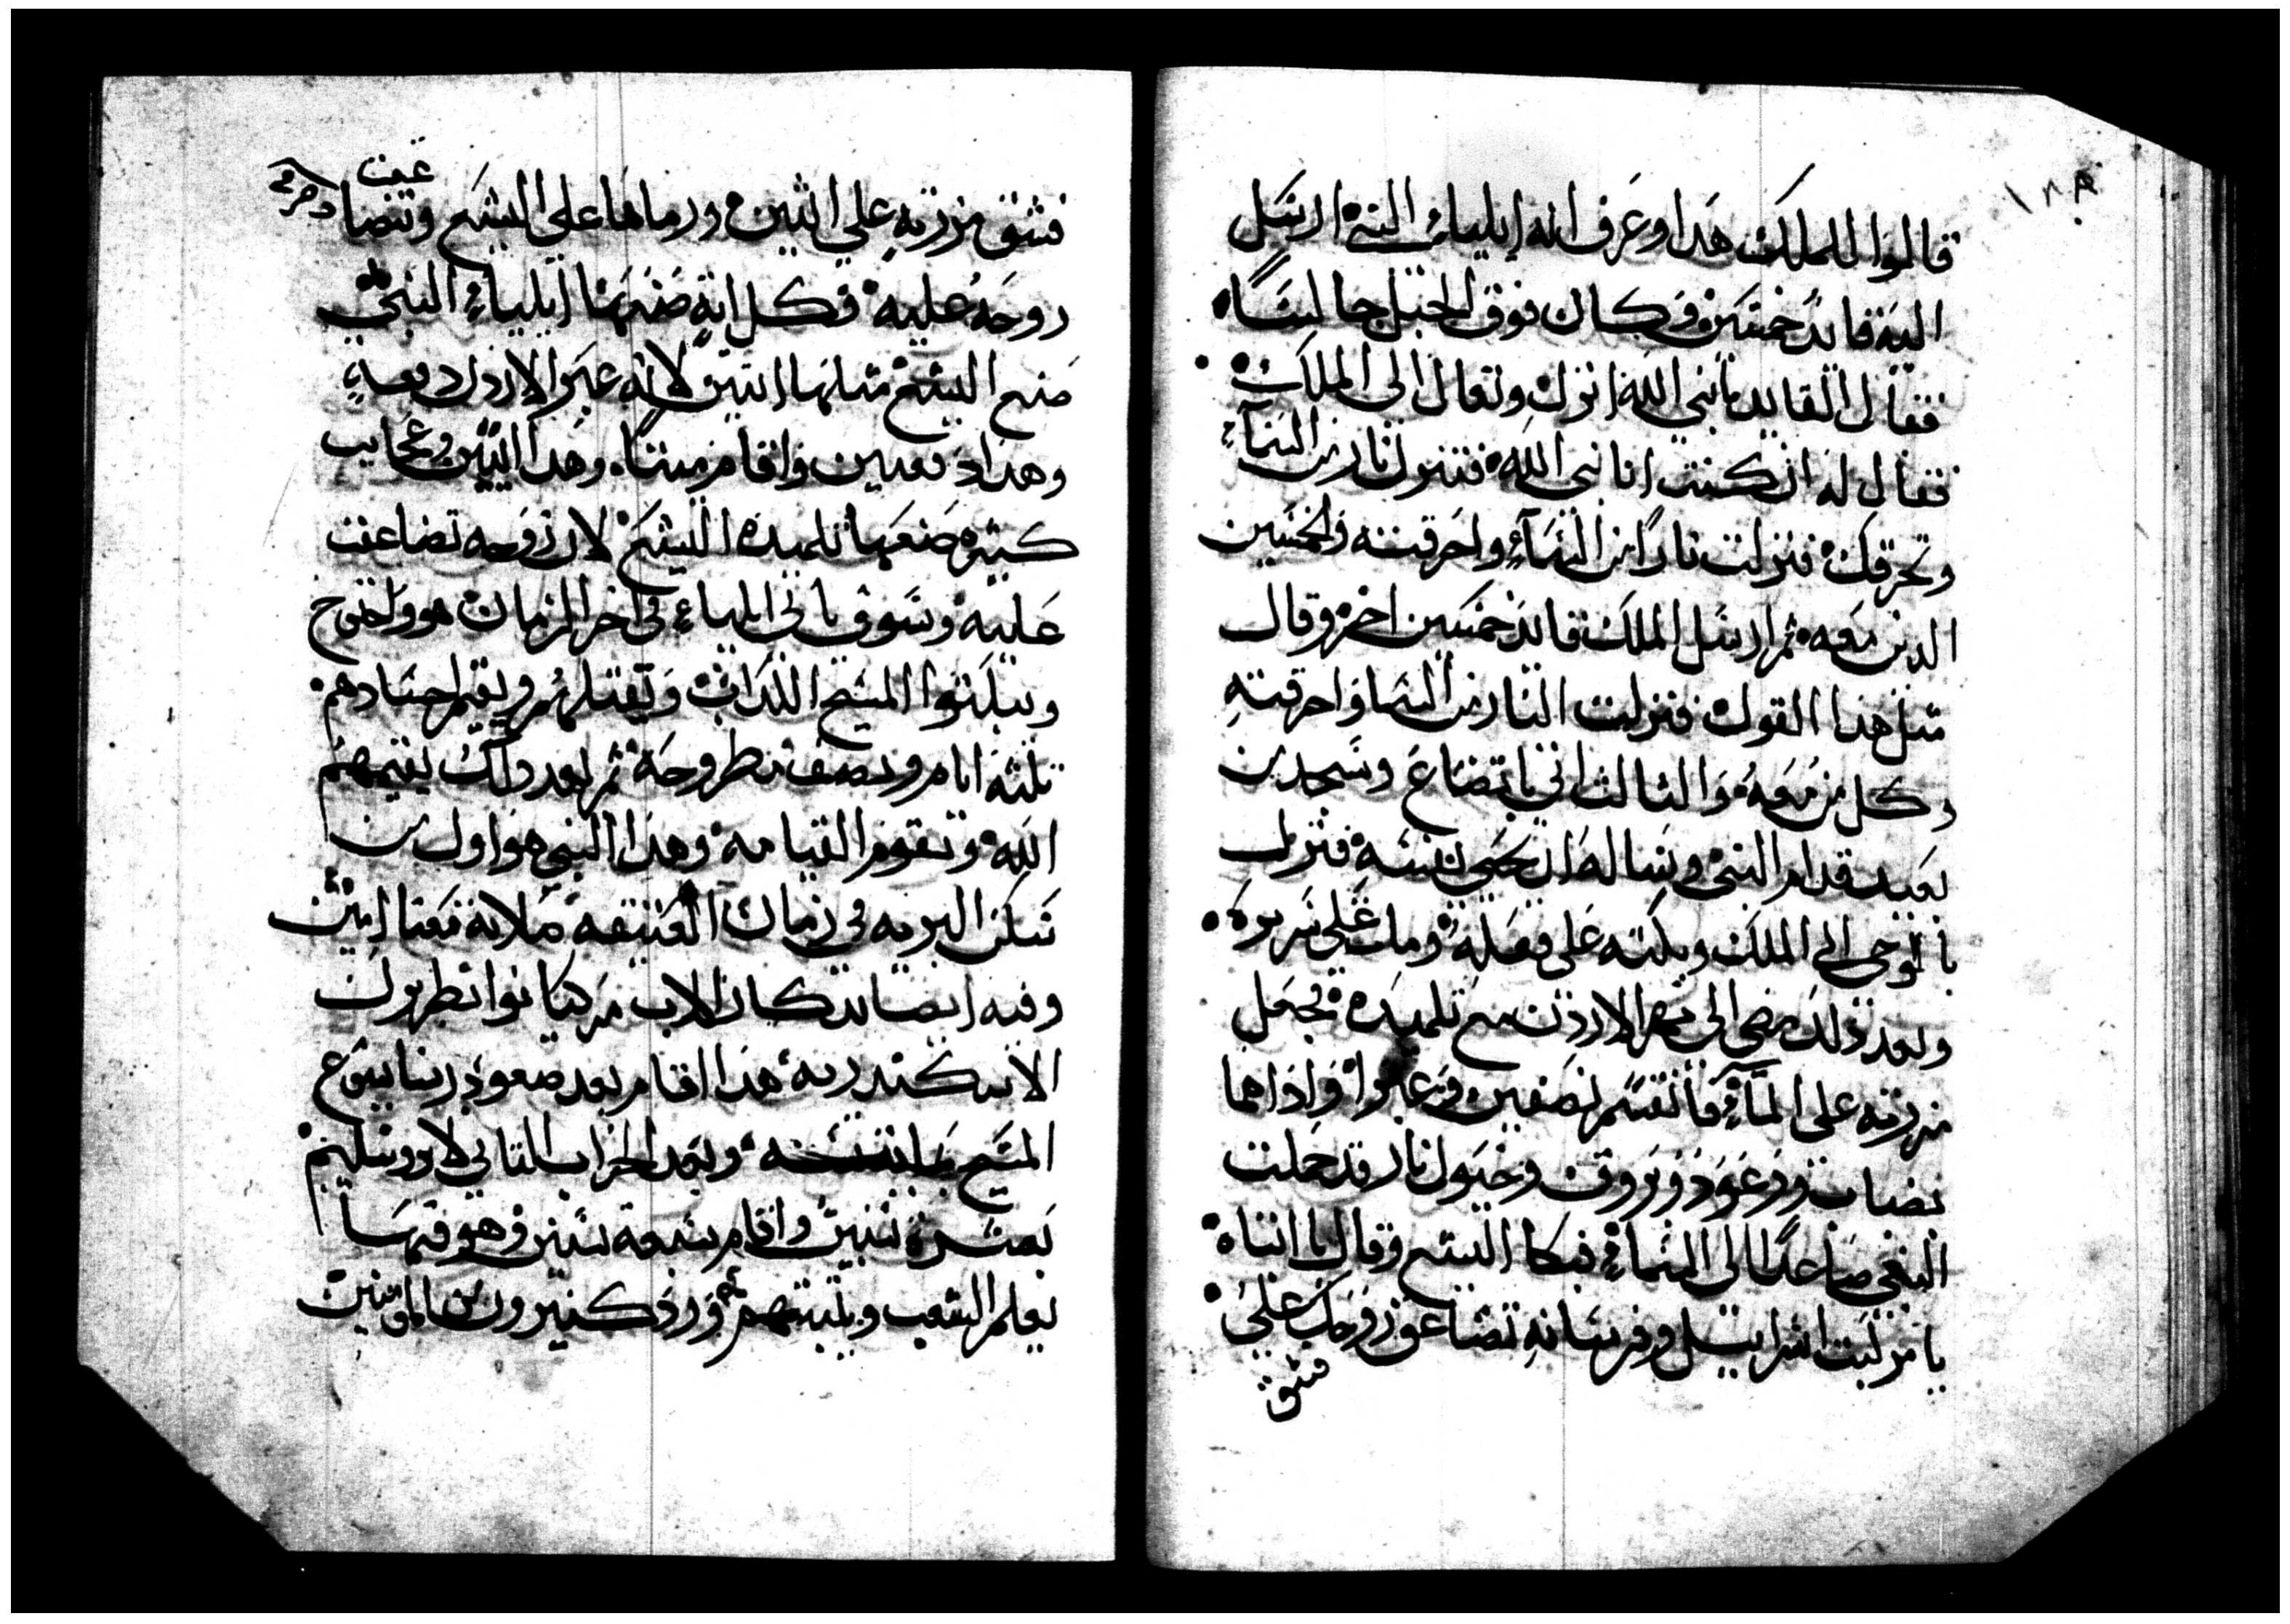 ١٨٨
قالوا للملك هدا وعرف انه ايلياء النبي ارسل
اليه قايد خمسين وكان فوق الجبل جالسًا
فقال القايد يانبي الله انزل وتعال الى الملك
فقال له ان كنت انا نبي الله فتنزل نار من السماء
وتحرقك فنزلت نارًا من السماء واحرقته والخمسين
الدين معه ثم ارسل الملك قايد خمسين اخر وقال
مثل هدا القول فنزلت النار من السما واحرقته
وكل من معه والثالث اتي باتضاع وسجد من
بعيد قدام النبي وساله ان يحيي نفسه فنزل
بالوحي الى الملك وبكته على فعله ومات على سريره
وبعد ذلك مضى الى نهر الاردن مع تلميده فجعل
مزرته على الماء فانقسم نصفين وعبروا واذا هما
بضباب ورعود وبروق وخيول نار قد حملت
النبي صاعدًا الى السماء فبكا اليشع وقال يا ابتاه
يا مركبت اسراييل وفرسانه تضاعف روحك علي
فشق
فشق مزرته على اثنين ورماها على اليشع وتضاعفت
روحه عليه فكل اية صنعها ايلياء النبي
صنع اليشع مثلها ايتين لانه عبر الاردن دفعة
وهدا دفعتين واقام ميتًا وهدا اثنين وعجايب
كثيره صنعها تلميده اليشع لان روحه تضاعفت
عليه وسوف ياتي ايلياء في اخر الزمان هو واخنوخ
ويبكتوا المسيح الكداب ويقتلهم ويقيم اجسادهم
ثلثة ايام ونصف مطروحة ثم بعد دلك يقيمهم
الله وتقوم القيامة وهدا النبي هو اول من
سكن البريه في زمان العتيقه صلاته معنا امين
وفيه ايضا تدكار الاب مركيانوا بطريرك
الاسكندريه هدا اقام بعد صعود ربنا يسوع
المسيح وبعد الخراب التاني لاورشليم
بعشرة سنين واقام تسعة سنين وهو فيها
يعلم الشعب ويثبتهم ورد كثيرون من المومنين